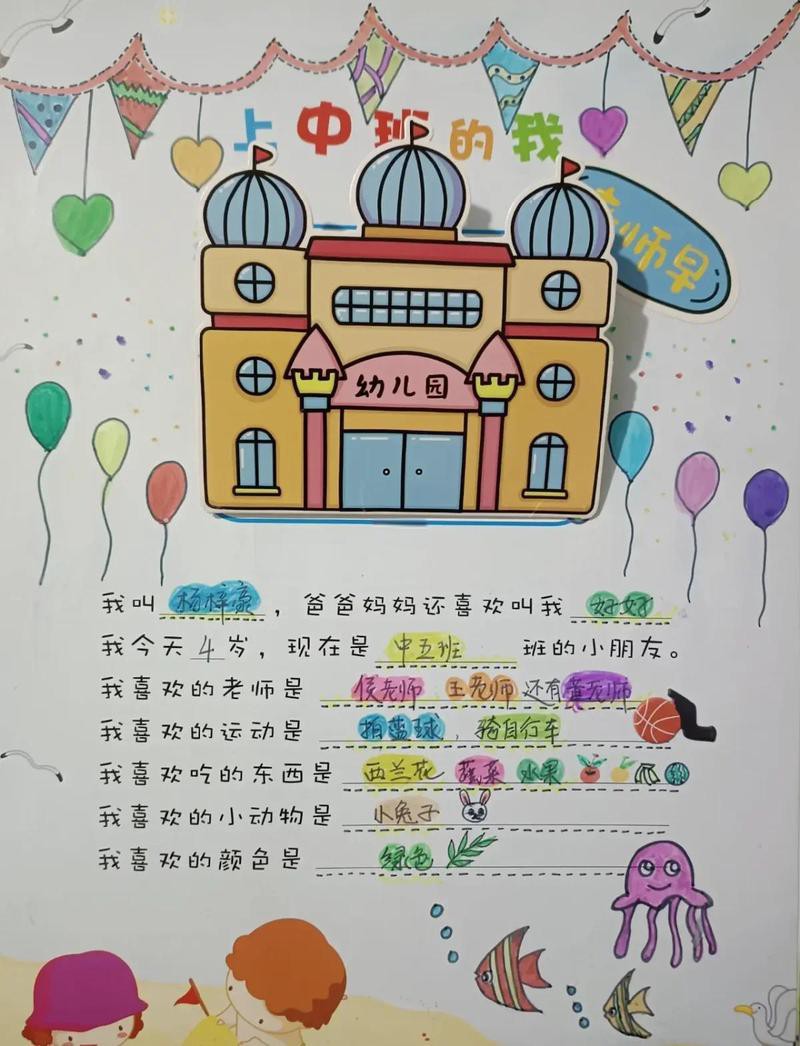 上中班的我
老师早
幼儿园
我叫 杨梓豪 ，爸爸妈妈还喜欢叫我 好好
我今天 4 岁，现在是 中五班 班的小朋友。
我喜欢的老师是 侯老师 王老师 还有 老师
我喜欢的运动是 拍蓝球，骑自行车
我喜欢吃的东西是 西兰花 水果
我喜欢的小动物是 小兔子
我喜欢的颜色是 绿色